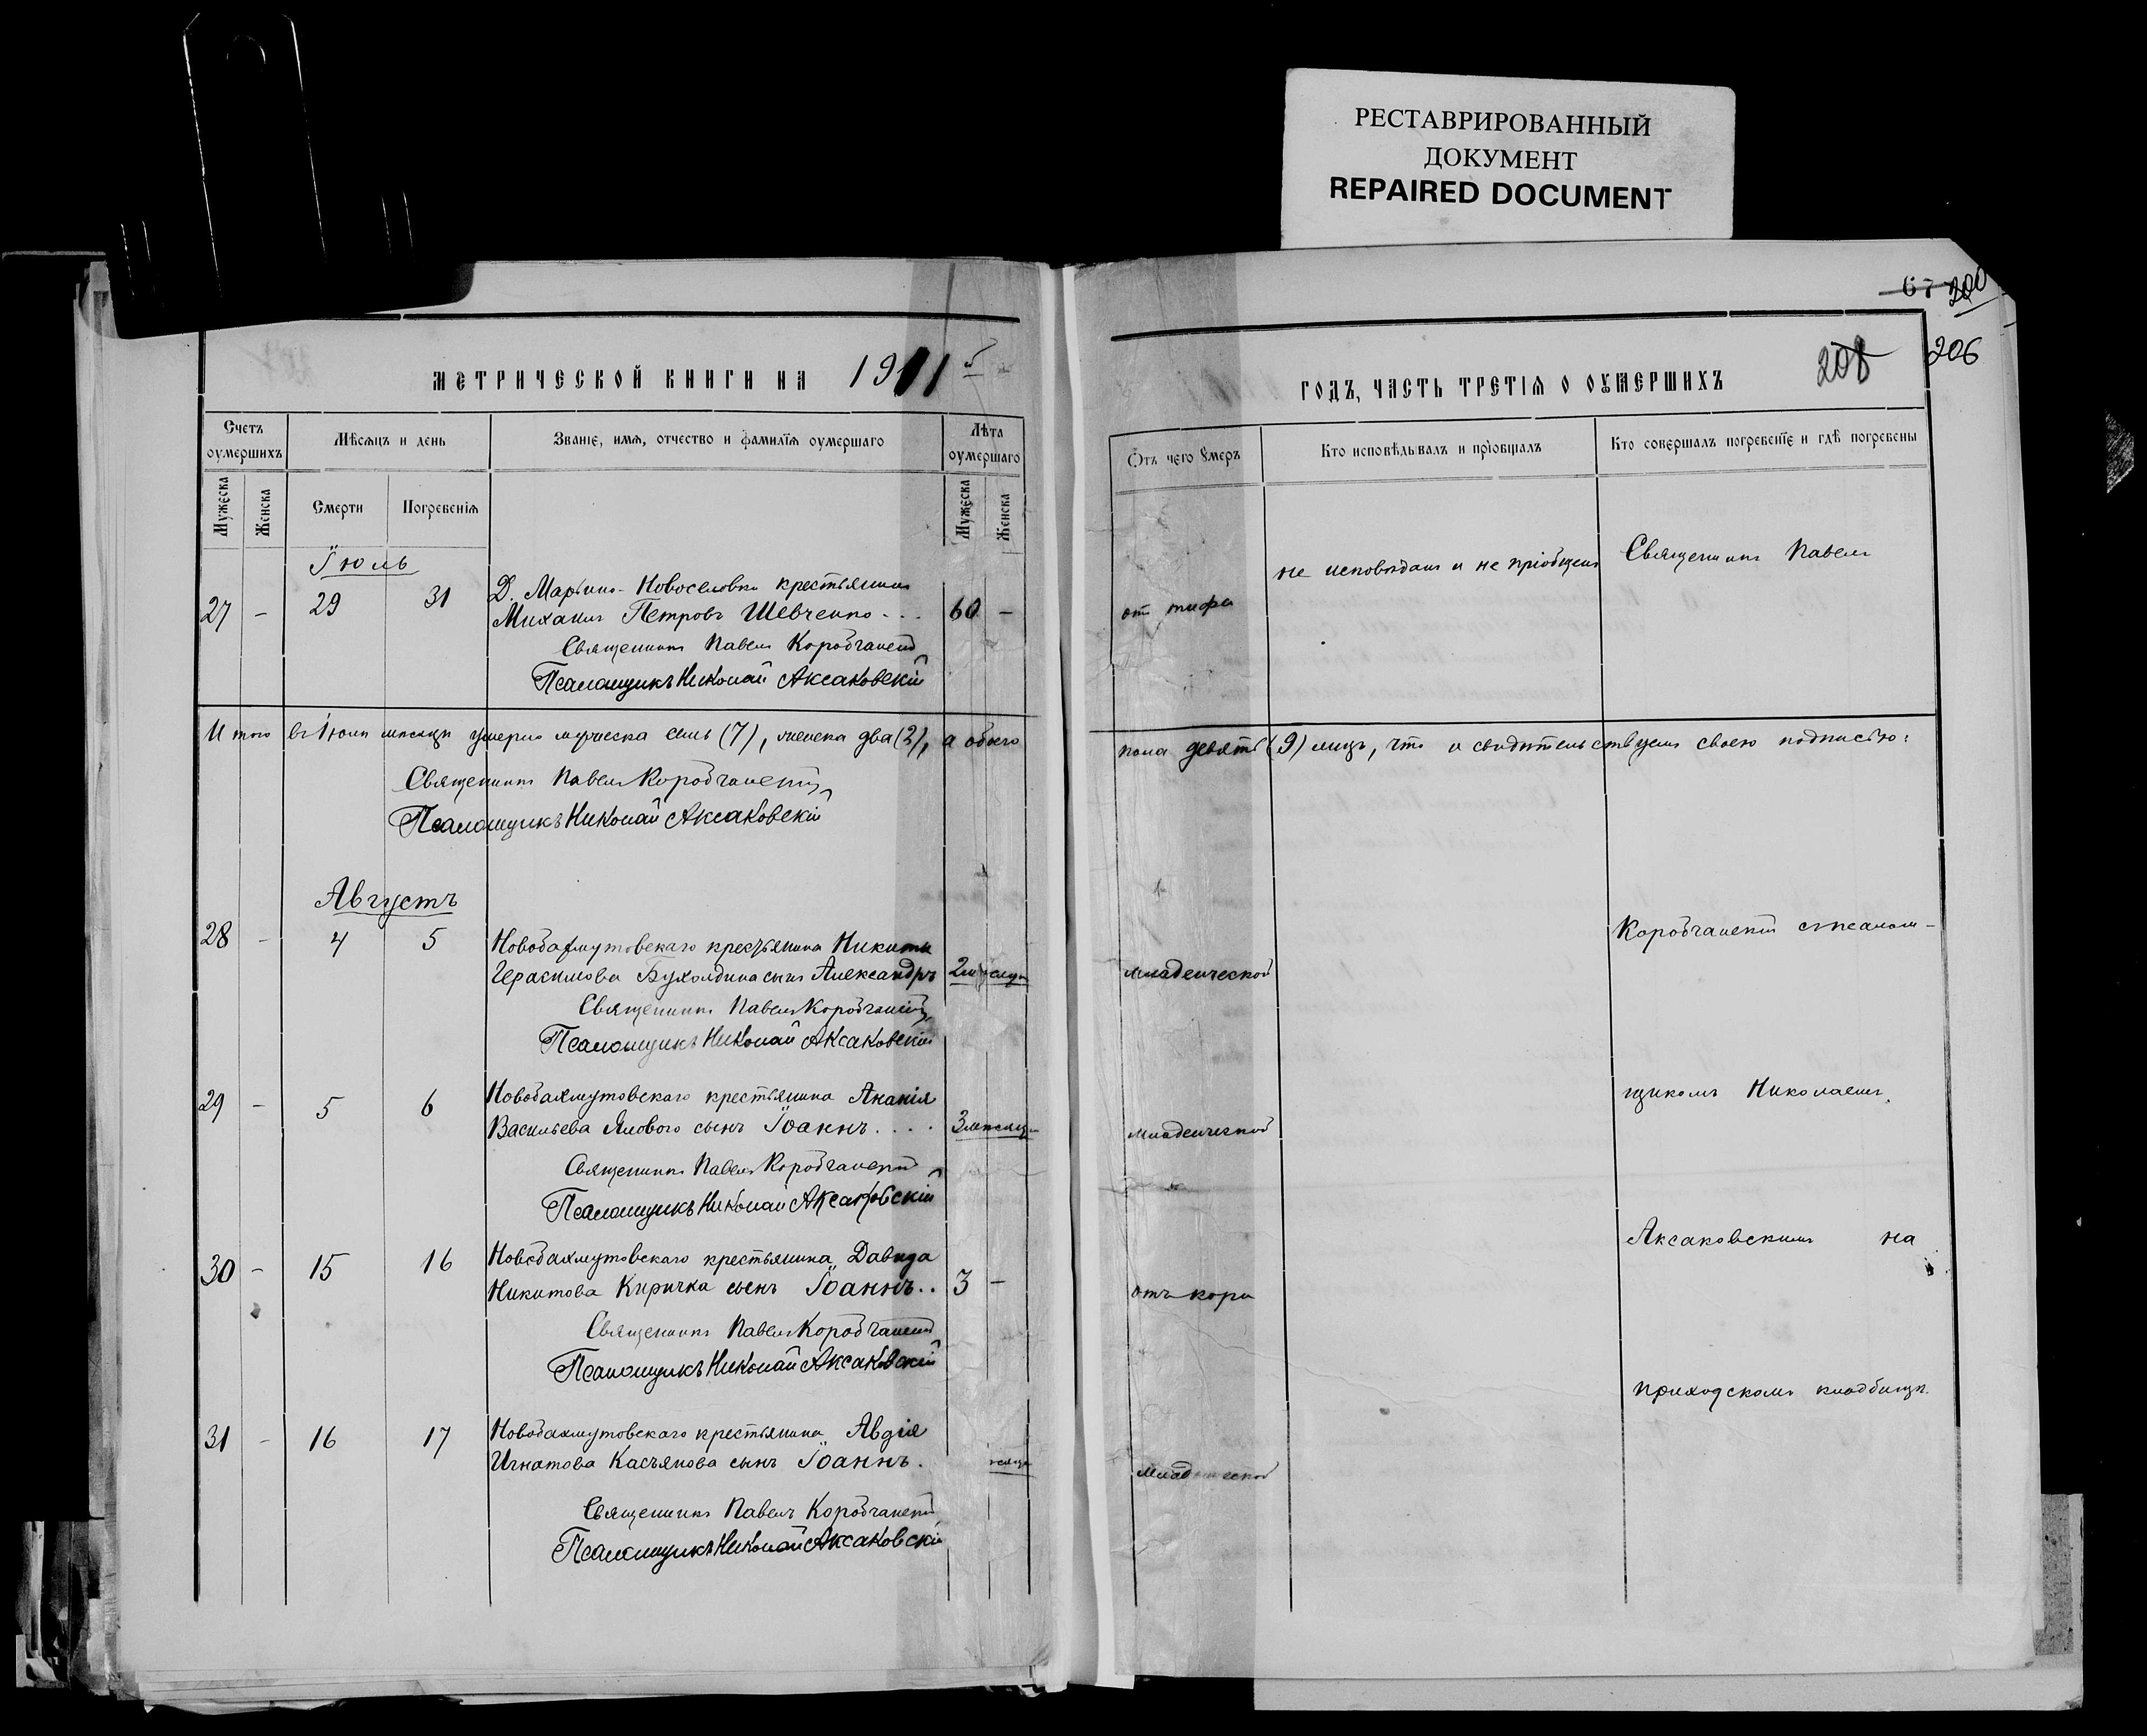 РЕСТАВРИРОВАННЫЙ
ДОКУМЕНТ
REPAIRED DOCUMENT
67 200
206
МЕТРИЧЕСКОЙ КНИГИ НА 1911
Счетъ оумершихъ
Мѣсяцъ и день
Званіе, имя, отчество и фамилїя оумершаго
Лѣта оумершаго
Мужеска
Женска
Смерти
Погребенїя
Мужеска
Женска
Їюль
27 - 29 31 Д. Марьино-Новоселовки крестьянинъ
Михаилъ Петровъ Шевченко 60 -
Священникъ Павелъ Коробчанскій
Псаломщикъ Николай Аксаковскій
Итого въ Іюлѣ мѣсяцѣ умерло мужеска семь (7), женска два (2), а обоего
Священникъ Павелъ Коробчанскій
Псаломщикъ Николай Аксаковскій
Августъ
28 - 4 5 Новобахмутовскаго крестьянина Никиты
Герасимова сынъ Александръ 2 мѣсяца
Священникъ Павелъ Коробчанскій
Псаломщикъ Николай Аксаковскій
29 - 5 6 Новобахмутовскаго крестьянина Ананія
Васильева Ялового сынъ Їоаннъ.... 3 мѣсяца
Священникъ Павелъ Коробчанскій
Псаломщикъ Николай Аксаковскій
30 - 15 16 Новобахмутовскаго крестьянина Давида
Никитова Киричка сынъ Їоаннъ.. 3 -
Священникъ Павелъ Коробчанскій
Псаломщикъ Николай Аксаковскій
31 - 16 17 Новобахмутовскаго крестьянина Авдія
Игнатова Касьянова сынъ Їоаннъ.
Священникъ Павелъ Коробчанскій
Псаломщикъ Николай Аксаковскій
ГОДЪ, ЧАСТЬ ТРЕТІЯ О ОУМЕРШИХЪ 208
Ѿтъ чего оумеръ
Кто исповѣдывалъ и прїобщалъ
Кто совершалъ погребенїе и гдѣ погребены
не исповѣданъ и не пріобщенъ
Священникъ Павелъ
отъ тифа
пола девять (9) лицъ, что и свидѣтельствуемъ своею подписью:
Коробчанскій съ псалом-
младенческой
щикомъ Николаемъ
младенческой
Аксаковскимъ на
отъ кори
приходскомъ кладбищѣ.
младенческой